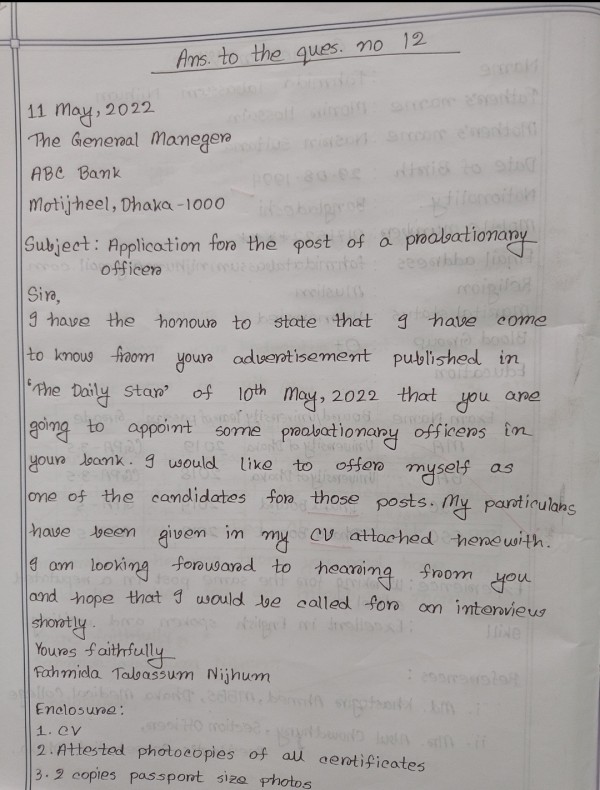 Ans. to the ques. no 12
11 May, 2022
The General Maneger
ABC Bank
Motijheel, Dhaka-1000
Subject: Application for the post of a proabationary
officer
Sir,
I have the honour to state that I have come
to know from your advertisement published in
'The Daily Star' of 10th May, 2022 that you are
going to appoint some proabationary officers in
your bank. I would like to offer myself as
one of the candidates for those posts. My particulars
have been given in my CV attached herewith.
I am looking foreward to hearing from you
and hope that I would be called for an interview
shortly.
Yours faithfully
Fahmida Tabassum Nijhum
Enclosure:
1. CV
2. Attested photocopies of all certificates
3. 2 copies passport size photos